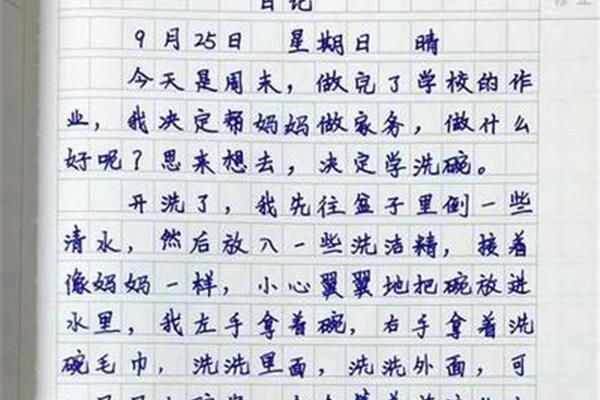 日记
9月25日 星期日 晴
今天是周末，做完了学校的作
业，我决定帮妈妈做家务，做什么
好呢？思来想去，决定学洗碗。
开洗了，我先往盆子里倒一些
清水，然后放入一些洗洁精，接着
像妈妈一样，小心翼翼地把碗放进
水里，我左手拿着碗，右手拿着洗
碗毛巾，洗洗里面，洗洗外面，可